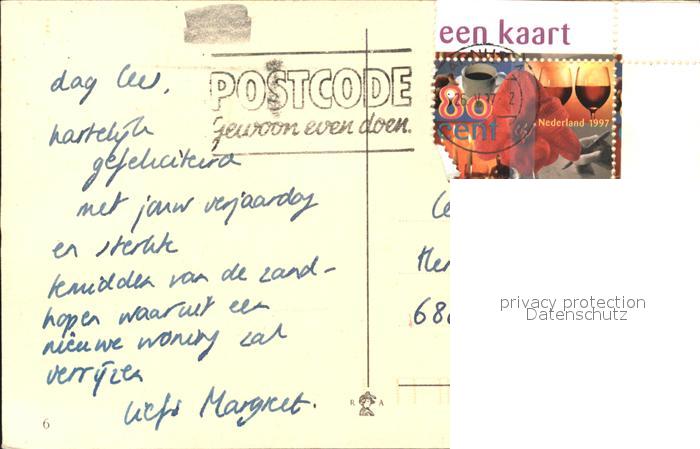 een kaart
POSTCODE
gewoon even doen.
80
cent
Nederland 1997
dag Cees,
hartelijk
gefeliciteerd
met jouw verjaardag
en sterkte
temidden van de zand-
hopen waaruit een
nieuwe woning zal
verrijzen
liefs Margreet.
6
R A
privacy protection
Datenschutz